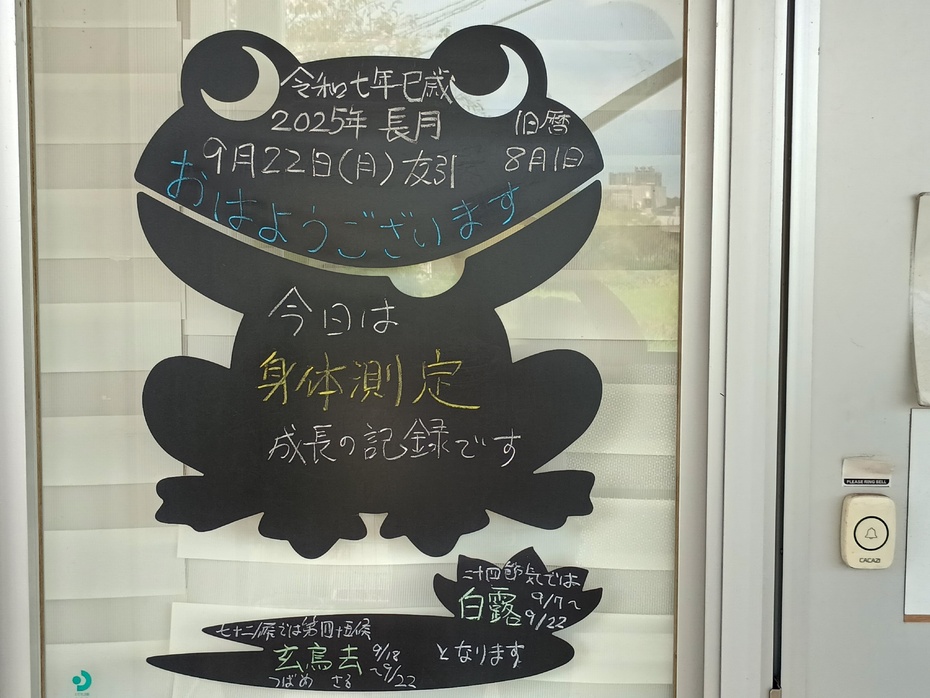 令和七年巳歳
2025年 長月
9月22日(月) 友引
旧暦
8月1日
おはようございます
今日は
身体測定
成長の記録です
二十四節気では
白露 9/7~9/22
七十二候では第四十五候
玄鳥去 9/18~9/22
つばめ さる
となります
PLEASE RING BELL
CACAZI